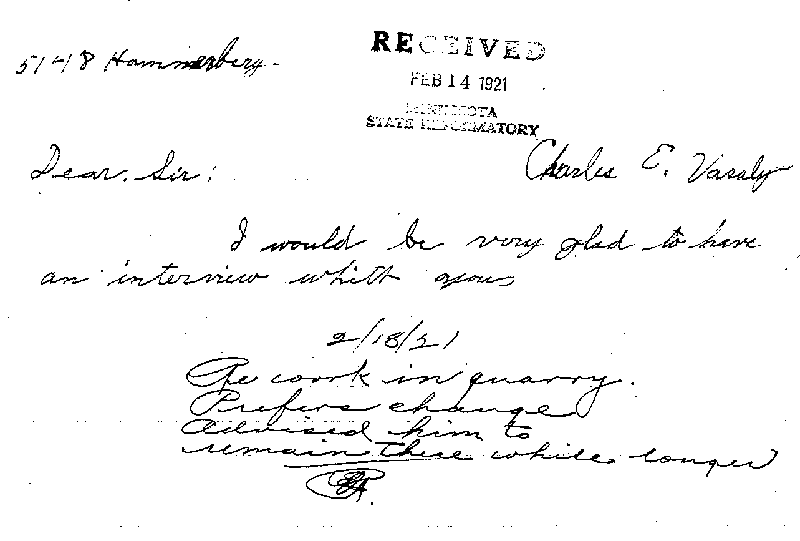 5148 Hammerberg-
RECEIVED
FEB 14 1921
MINNESOTA
STATE REFORMATORY
Dear. Sir:
Charles E. Vasaly
I would be very glad to have
an interview whitt you
2/18/21
Re work in quarry.
Prefers change
Advised him to
remain there while longer